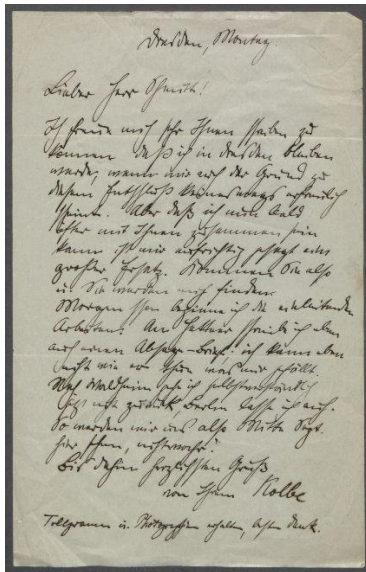 Dresden, Montag.
Lieber Herr Schmidt!
Ich freue mich sehr Ihnen schreiben zu
können daß ich in Dresden bleiben
werde, wenn mir auch der Grund zu
diesem Entschluß keineswegs erfreulich
scheint. Aber daß ich nun bald
öfter mit Ihnen zusammen sein
kann ist mir aufrichtig gesagt ein
großer Ersatz. Kommen Sie also
u. Sie werden mich finden.
Morgen schon beginne ich die einleitenden
Arbeiten. An Hettner schreib ich eben
auch einen Absage-Brief: ich kann eben
nicht wie er thun was mir gefällt.
Nach Waldheim geh ich selbstverständlich
jetzt nicht zurück, Berlin lasse ich auch.
So werden wir uns also Mitte Sept.
hier sehen, nichtwahr?
Bis dahin herzlichsten Gruß
von Ihrem Kolbe
Telegramm u. Photographien erhalten, besten Dank.